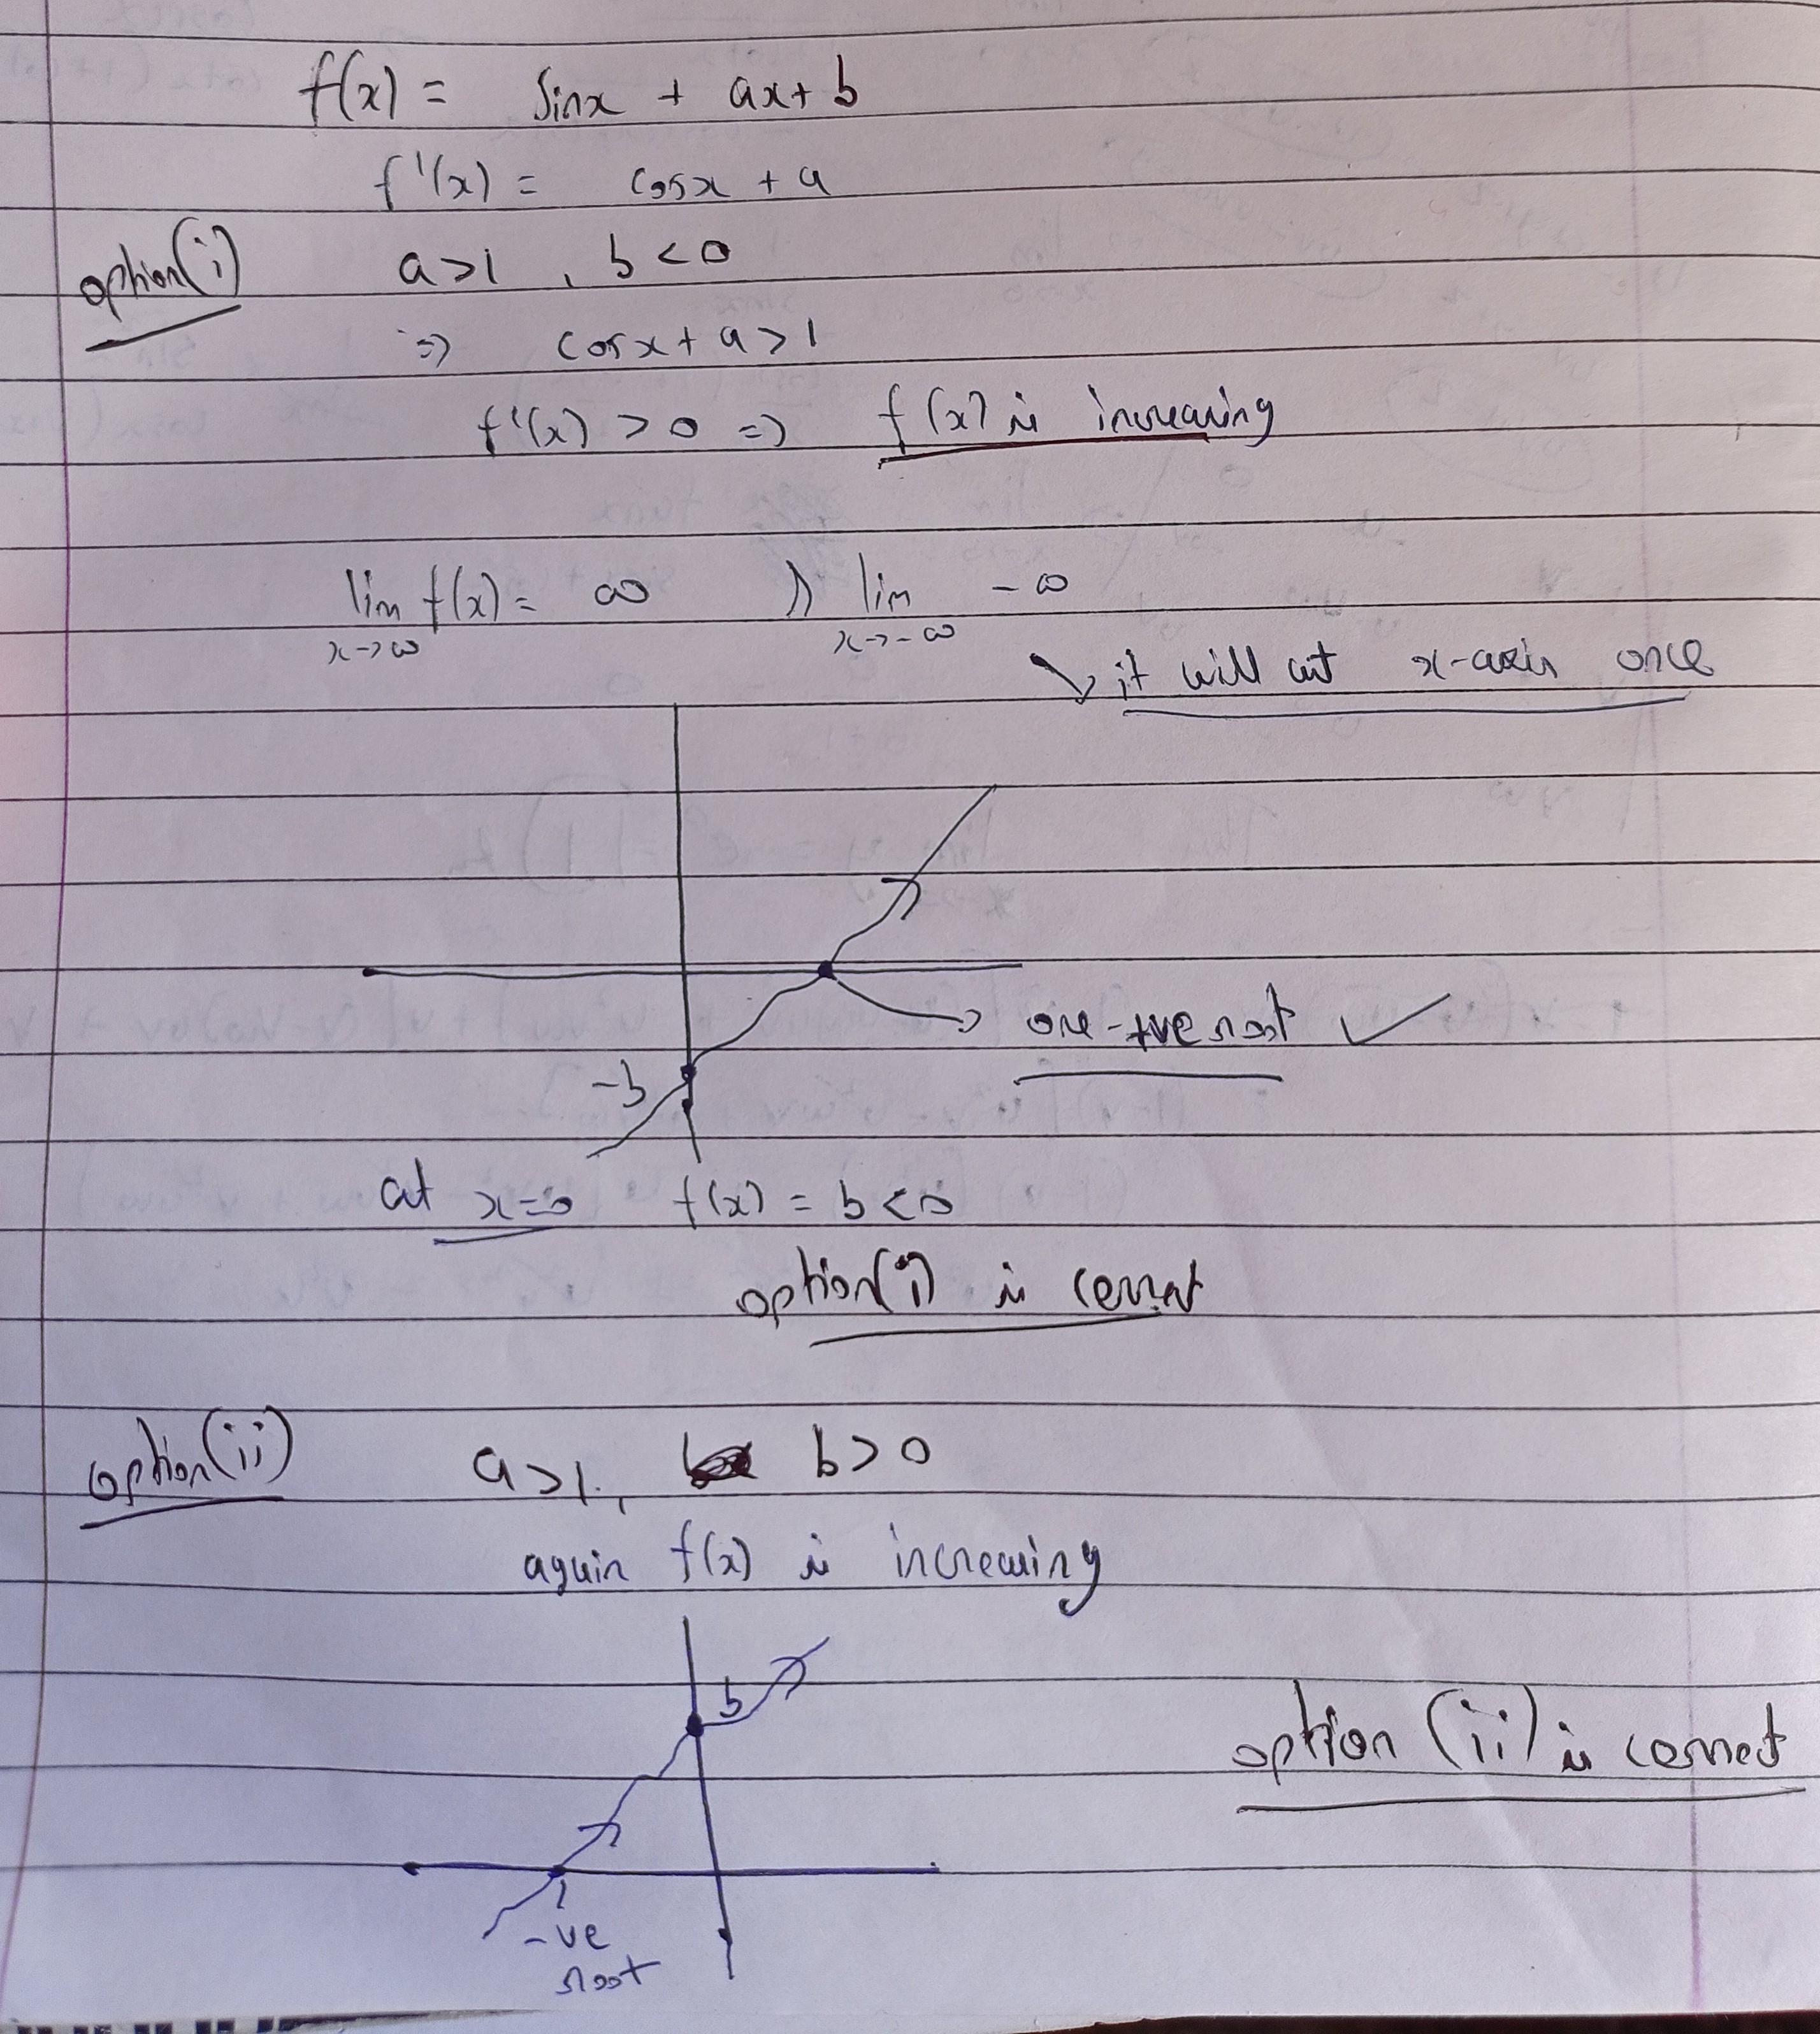 f(x) = sinx + ax + b
f'(x) = cosx + a
option(i) a>1 , b<0
=> cosx + a > 1
f'(x) > 0 => f(x) is increasing
lim f(x) = ∞ lim - ∞
x->∞ x->-∞
it will cut x-axis once
one +ve root ✓
-b
at x=0 f(x) = b<0
option(i) is correct
option(ii) a>1, b>0
again f(x) is increasing
b
option (ii) is correct
-ve
root